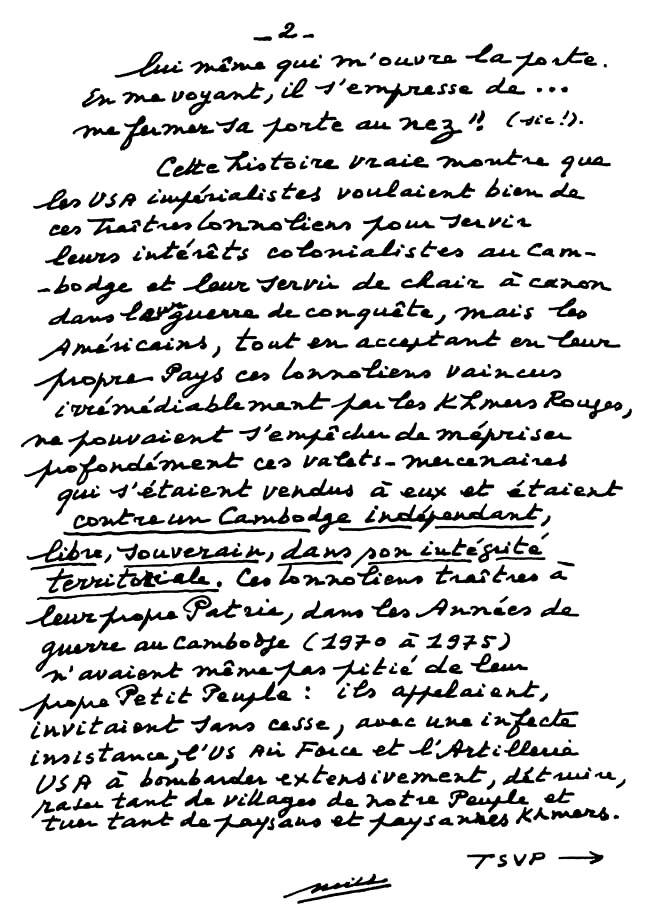 - 2 -
lui même qui m'ouvre la porte.
En me voyant, il s'empresse de ...
me fermer sa porte au nez"! (sic!).
Cette histoire vraie montre que
les USA impérialistes voulaient bien de
ces Traîtres lonnoliens pour servir
leurs intérêts colonialistes au Cam-
-bodge et leur servir de chair à canon
dans leur guerre de conquête, mais les
Américains, tout en acceptant en leur
propre Pays ces lonnoliens vaincus
irrémédiablement par les Khmers Rouges,
ne pouvaient s'empêcher de mépriser
profondément ces valets-mercenaires
qui s'étaient vendus à eux et étaient
contre un Cambodge indépendant,
libre, souverain, dans son intégrité
territoriale. Ces lonnoliens traîtres à
leur propre Patrie, dans les Années de
guerre au Cambodge (1970 à 1975)
n'avaient même pas pitié de leur
propre Petit Peuple : ils appelaient,
invitaient sans cesse, avec une infecte
insistance, l'US Air Force et l'Artillerie
USA à bombarder extensivement, détruire,
raser tant de villages de notre Peuple et
tuer tant de paysans et paysannes Khmers.
TSVP →